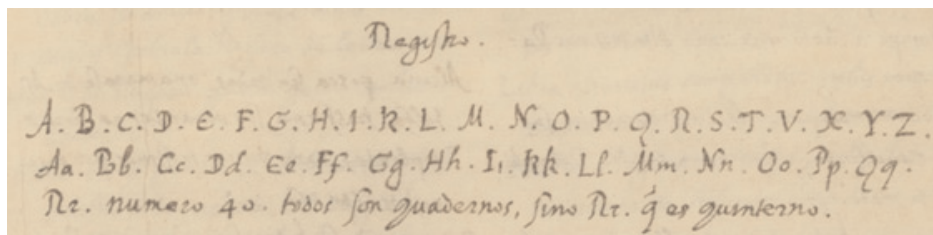 Registro.
A. B. C. D. E. F. G. H. I. K. L. M. N. O. P. Q. R. S. T. V. X. Y. Z.
Aa. Bb. Cc. Dd. Ee. Ff. Gg. Hh. Ii. Kk. Ll. Mm. Nn. Oo. Pp. Qq.
Rr. numero 40. todos son quadernos, sino Rr. q́ es quinterno.